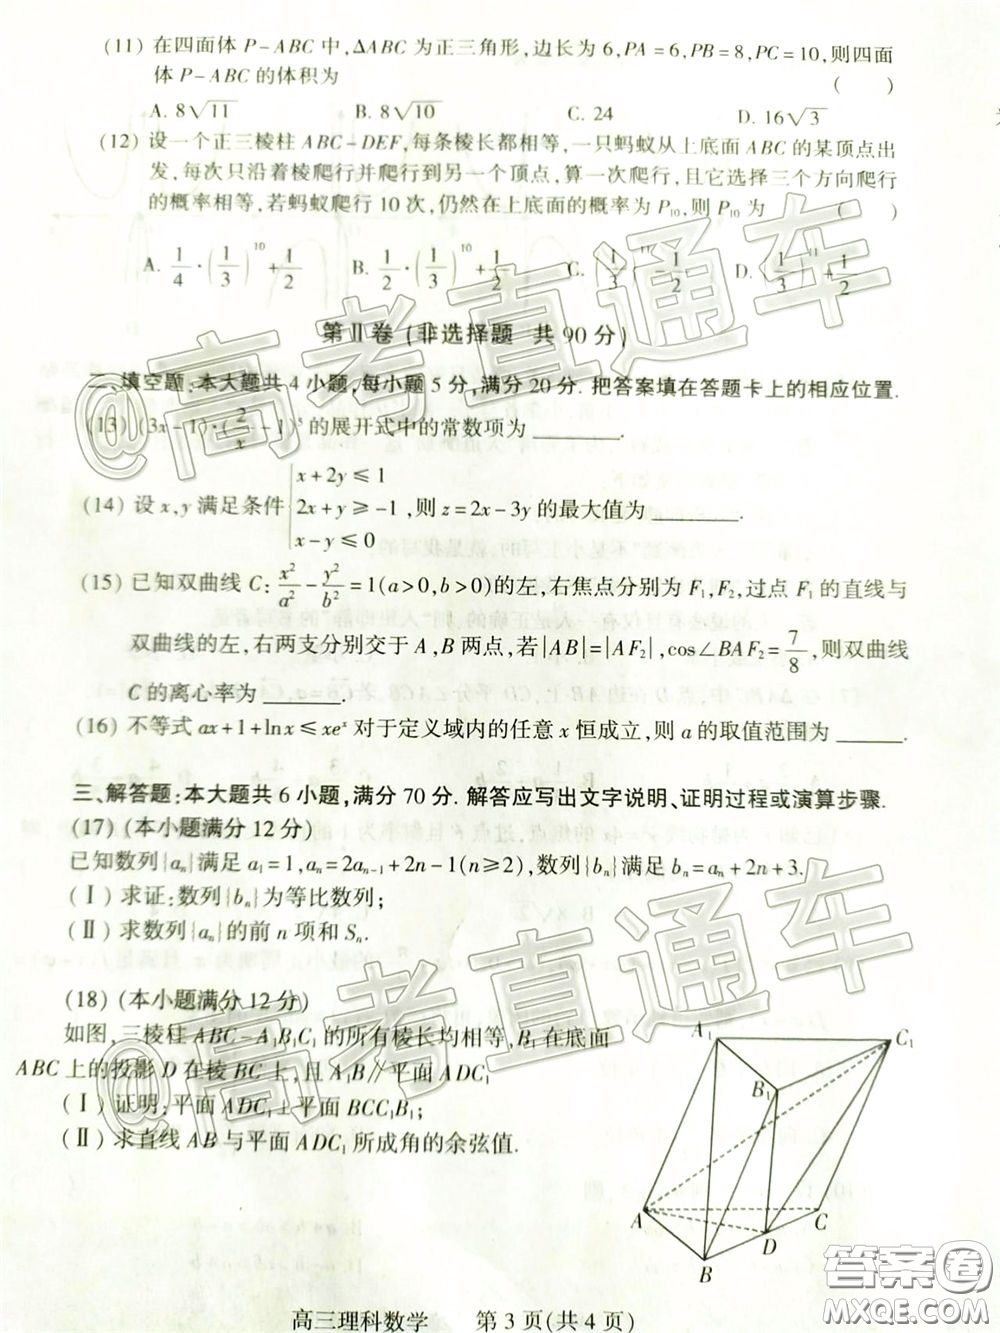 (11) 在四面体 P-ABC 中,ΔABC 为正三角形,边长为 6,PA=6,PB=8,PC=10,则四面
体 P-ABC 的体积为 ( )
A. 8√11 B. 8√10 C. 24 D. 16√3
(12) 设一个正三棱柱 ABC-DEF,每条棱长都相等,一只蚂蚁从上底面 ABC 的某顶点出
发,每次只沿着棱爬行并爬行到另一个顶点,算一次爬行,且它选择三个方向爬行
的概率相等,若蚂蚁爬行 10 次,仍然在上底面的概率为 P₁₀,则 P₁₀ 为 ( )
A. 1/4·(1/3)^10+1/2 B. 1/2·(1/3)^10+1/2 C. (1/3)^11-1/2 D. (1/3)^11+1/2
第Ⅱ卷 (非选择题 共 90 分)
二、填空题:本大题共 4 小题,每小题 5 分,满分 20 分. 把答案填在答题卡上的相应位置.
(13) (3x-1)·(2/x-1)^5 的展开式中的常数项为 ______.
(14) 设 x,y 满足条件 { x+2y≤1
2x+y≥-1
x-y≤0 ,则 z=2x-3y 的最大值为 ______.
(15) 已知双曲线 C: x²/a²-y²/b²=1(a>0,b>0)的左,右焦点分别为 F₁,F₂,过点 F₁ 的直线与
双曲线的左,右两支分别交于 A,B 两点,若|AB|=|AF₂|,cos∠BAF₂=7/8,则双曲线
C 的离心率为 ______.
(16) 不等式 ax+1+lnx≤xeˣ 对于定义域内的任意 x 恒成立,则 a 的取值范围为 ______.
三、解答题:本大题共 6 小题,满分 70 分. 解答应写出文字说明、证明过程或演算步骤.
(17) (本小题满分 12 分)
已知数列{aₙ}满足 a₁=1,aₙ=2aₙ₋₁+2n-1(n≥2),数列{bₙ}满足 bₙ=aₙ+2n+3.
(Ⅰ) 求证:数列{bₙ}为等比数列;
(Ⅱ) 求数列{aₙ}的前 n 项和 Sₙ.
(18) (本小题满分 12 分)
如图,三棱柱 ABC-A₁B₁C₁ 的所有棱长均相等,B₁ 在底面
ABC 上的投影 D 在棱 BC 上,且 A₁B∥平面 ADC₁
(Ⅰ) 证明:平面 ADC₁⊥平面 BCC₁B₁;
(Ⅱ) 求直线 AB 与平面 ADC₁ 所成角的余弦值.
A₁
C₁
B₁
A
C
D
B
高三理科数学 第 3 页(共 4 页)
@高考直通车
@高考直通车
答案圈
MXQE.COM